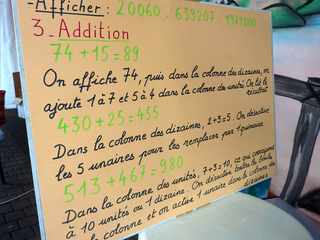 -Afficher : 20060 . 639207 . 1971000
3. Addition
74 + 15 = 89
On affiche 74, puis dans la colonne des dizaines, on
ajoute 1 à 7 et 5 à 4 dans la colonne des unités. On lit le
résultat
430 + 25 = 455
Dans la colonne des dizaines, 2+3=5. On désactive
les 5 unaires pour les remplacer par 1 quinaire.
513 + 467 = 980
Dans la colonne des unités, 7+3=10, ce qui correspond
à 10 unités ou 1 dizaine. On désactive toutes les boules
colonne et on active 1 unaire dans la colonne des
dizaines